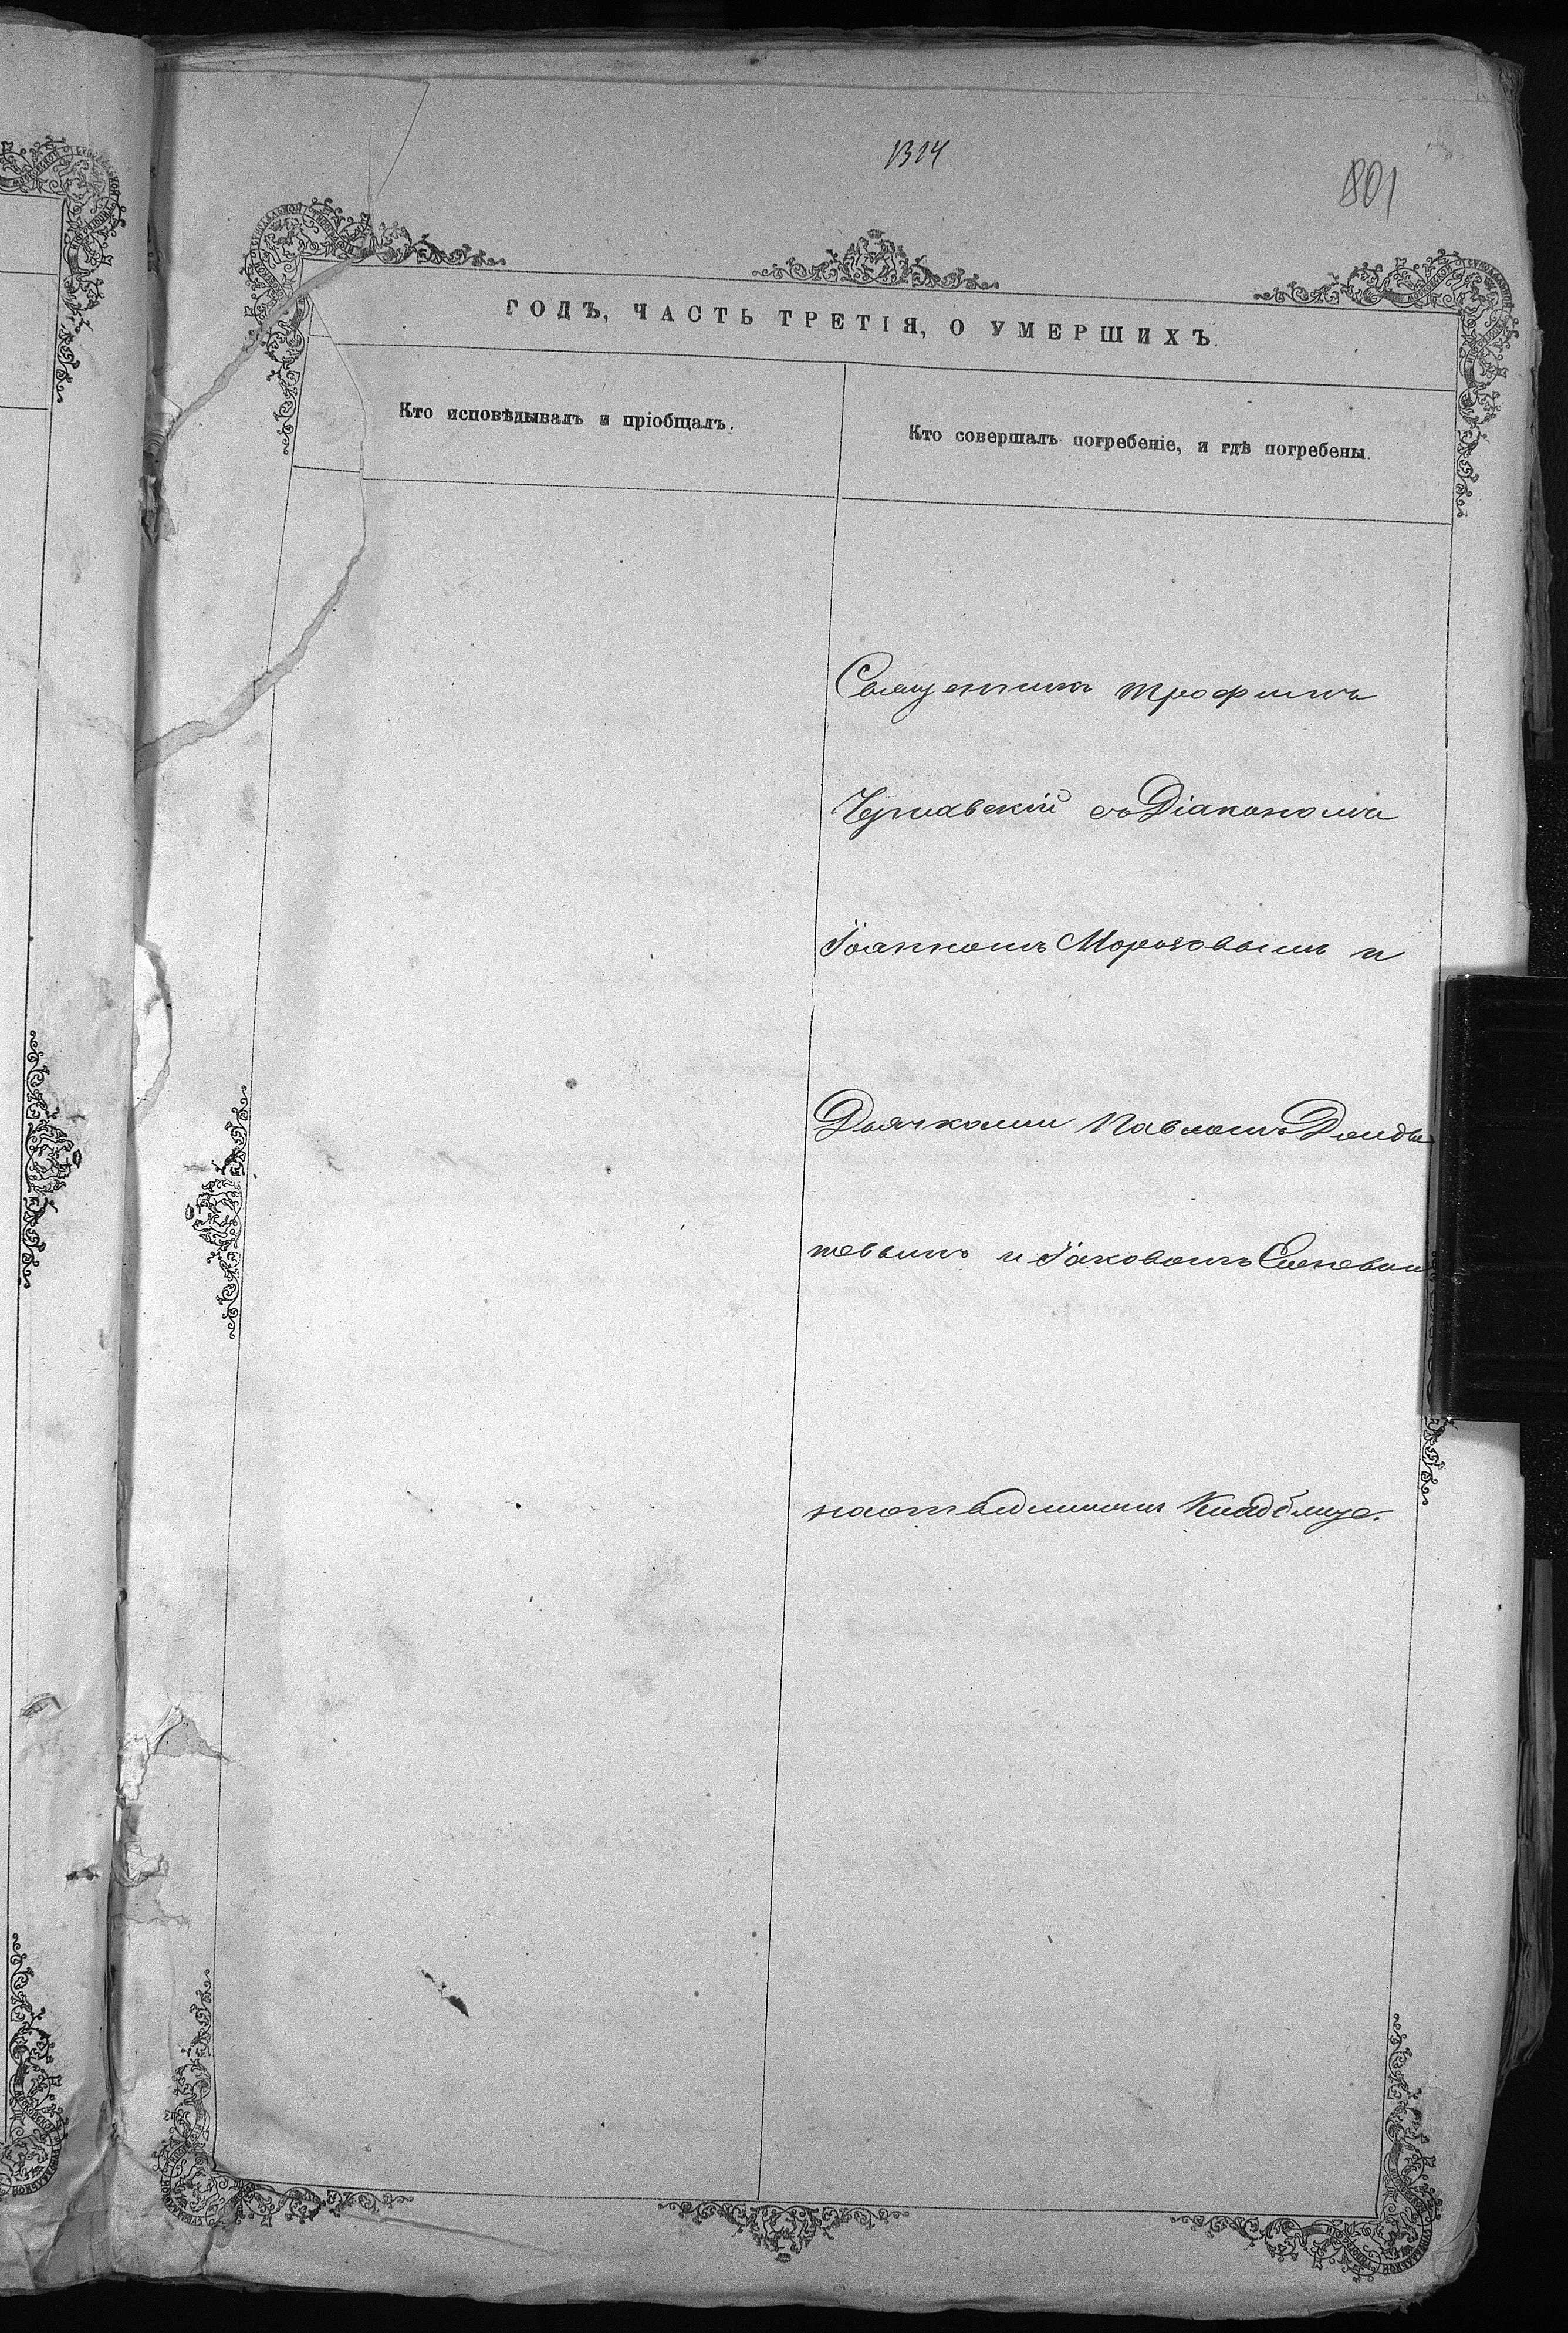 1314
801
ГОДЪ, ЧАСТЬ ТРЕТІЯ, О УМЕРШИХЪ.
Кто исповѣдывалъ и пріобщалъ.
Кто совершалъ погребеніе, и гдѣ погребены.
Священникъ Трофимъ
Чернавскій съ Діакономъ
Іоанномъ Морозовымъ и
Дьячками Павломъ
и Іаковомъ
Кладбище.